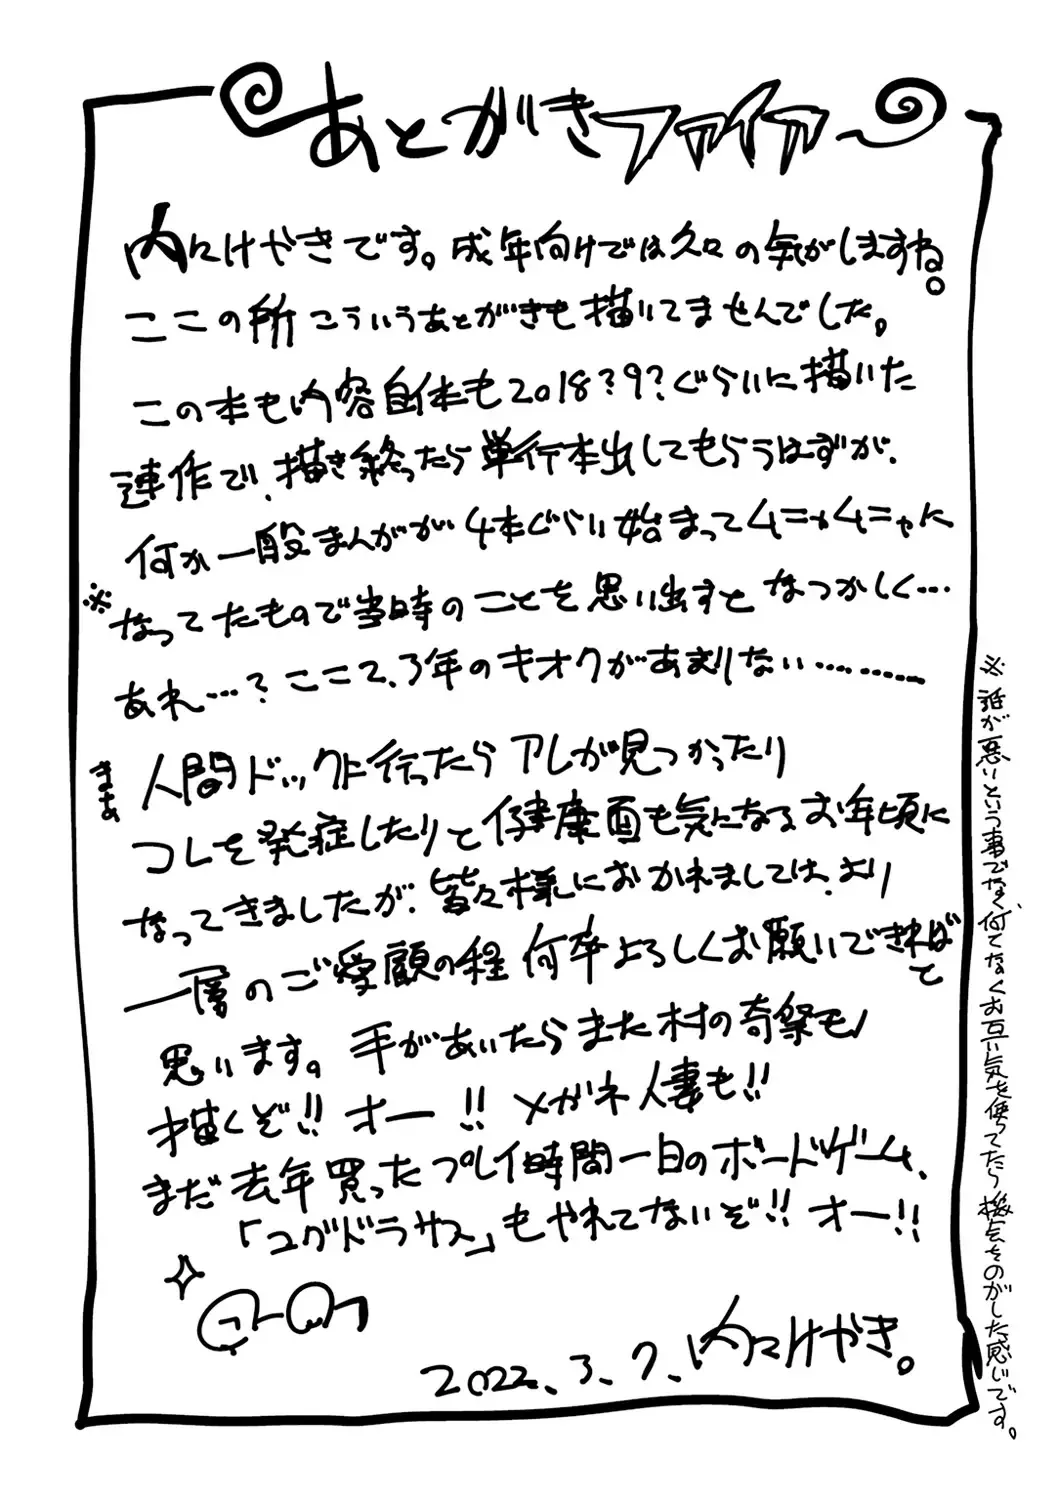 あとがきファイア
内々けやきです。成年向けでは久々の気がしますね。
ここの所こういうあとがきも描いてませんでした。
この本も内容自体も2018?9?ぐらいに描いた
連作で、描き終ったら単行本出してもらうはずが、
何か一般まんがが4本ぐらい始まって4ニャ4ニャに
※なってたもので当時のことを思い出すとなつかしく…
あれ…?ここ2、3年のキオクがあまりない………
まあ人間ドックに行ったらアレが見つかったり
コレを発症したりと健康面も気になるお年頃に
なってきましたが、皆々様におかれましては、より
一層のご愛顧の程何卒よろしくお願いできればと
思います。手があいたらまた村の奇祭も
描くぞ!!オー!!メガネ人妻も!!
まだ去年買ったプレイ時間一日のボードゲーム、
「ユグドラサス」もやれてないぞ!!オー!!
2022.3.7.内々けやき。
※誰が悪いという事でなく、何てなくお互い気を使ってたら機会をのがした感じです。